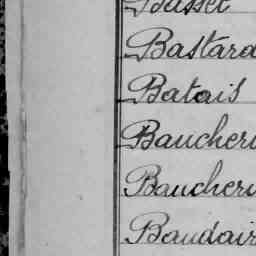 Basset
Bastard
Batais
Baucher
Baucher
Baudair